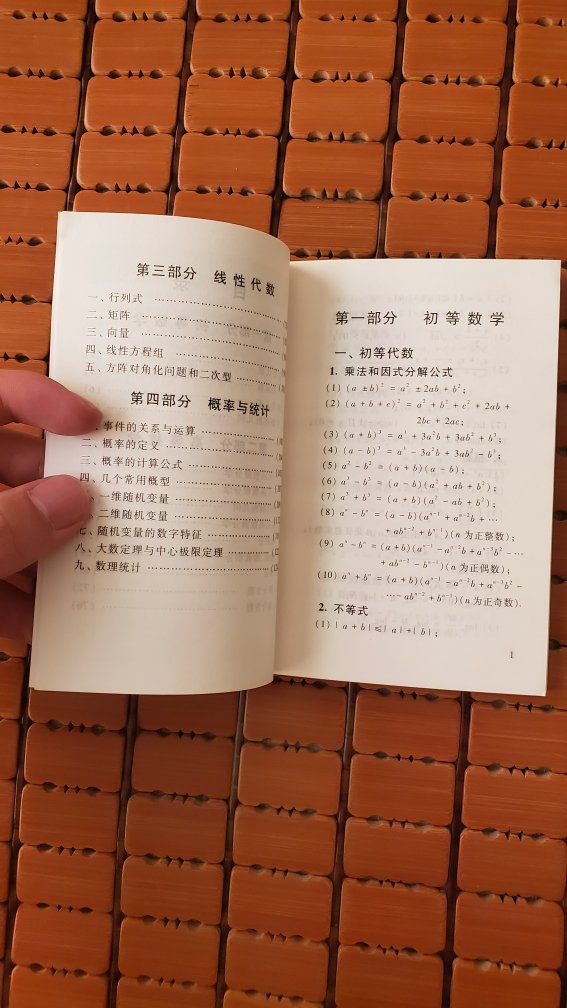 第三部分 线性代数
一、行列式
二、矩阵
三、向量
四、线性方程组
五、方阵对角化问题和二次型
第四部分 概率与统计
事件的关系与运算
二、概率的定义
三、概率的计算公式
四、几个常用概型
一维随机变量
二维随机变量
七、随机变量的数字特征
八、大数定理与中心极限定理
九、数理统计
第一部分 初等数学
一、初等代数
1. 乘法和因式分解公式
(1) (a ± b)² = a² ± 2ab + b²;
(2) (a + b + c)² = a² + b² + c² + 2ab +
2bc + 2ac;
(3) (a + b)³ = a³ + 3a²b + 3ab² + b³;
(4) (a - b)³ = a³ - 3a²b + 3ab² - b³;
(5) a² - b² = (a + b)(a - b);
(6) a³ - b³ = (a - b)(a² + ab + b²);
(7) a³ + b³ = (a + b)(a² - ab + b²);
(8) aⁿ - bⁿ = (a - b)(aⁿ⁻¹ + aⁿ⁻²b + ⋯
+ abⁿ⁻² + bⁿ⁻¹)(n 为正整数);
(9) aⁿ - bⁿ = (a + b)(aⁿ⁻¹ - aⁿ⁻²b + aⁿ⁻³b² - ⋯
+ abⁿ⁻² - bⁿ⁻¹)(n 为正偶数);
(10) aⁿ + bⁿ = (a + b)(aⁿ⁻¹ - aⁿ⁻²b + aⁿ⁻³b² -
⋯ - abⁿ⁻² + bⁿ⁻¹)(n 为正奇数).
2. 不等式
(1) | a + b | ≤ | a | + | b |;
1